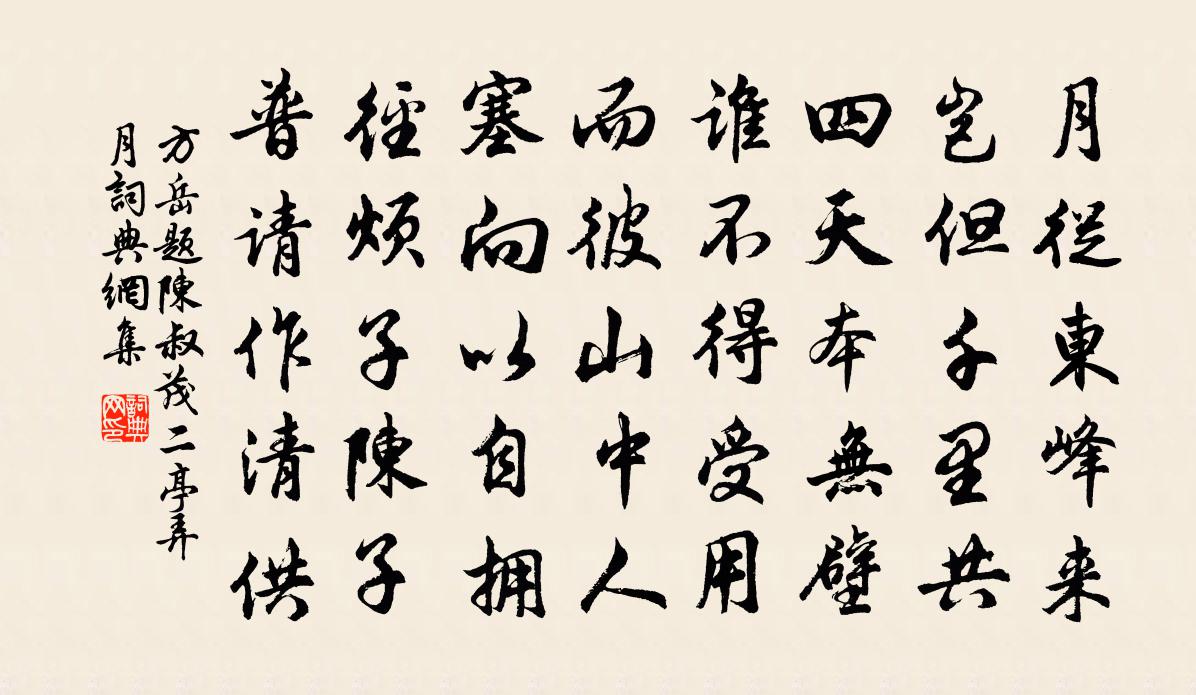 月從東峰来
豈但千里共
四天本無壁
谁不得受用
而彼山中人
塞向以自拥
徑烦子陳子
普请作清供
方岳题陳叔茂二亭弄
月詞典網集
詞典网印